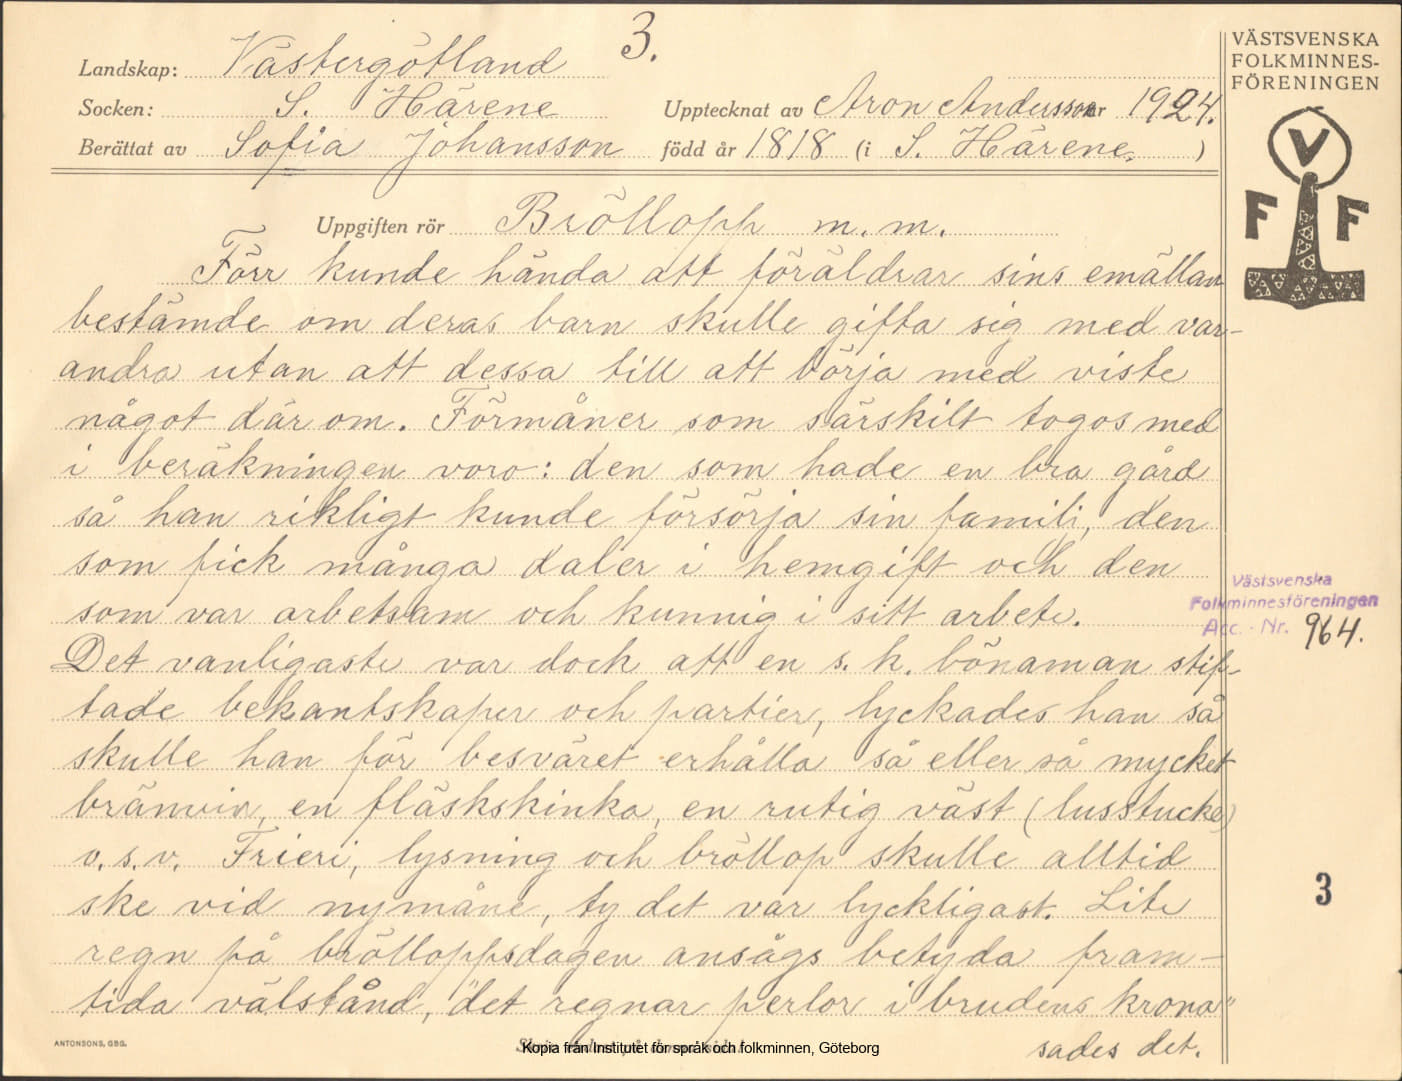 3.
Landskap: Västergötland
Socken: S. Härene
Upptecknat av Aron Andersson år 1924.
Berättat av Sofia Johansson född år 1818 (i S. Härene. )
VÄSTSVENSKA
FOLKMINNES-
FÖRENINGEN
V
F F
Uppgiften rör Bröllopp m. m.
Förr kunde hända att föräldrar sins emällan
bestämde om deras barn skulle gifta sig med var-
andra utan att dessa till att börja med viste
något där om. Förmåner som särskilt togos med
i beräkningen voro: den som hade en bra gård
så han rikligt kunde försörja sin familj, den
som fick många daler i hemgift och den
som var arbetsam och kunnig i sitt arbete.
Det vanligaste var dock att en s. k. bönaman stif-
tade bekantskaper och partier, lyckades han så
skulle han för besväret erhålla så eller så mycket
bränvin, en fläskskinka, en rutig väst (lusstucke)
o. s. v. Frieri, lysning och bröllop skulle alltid
ske vid nymåne, ty det var lyckligast. Lite
regn på brölloppsdagen ansågs betyda fram-
tida välstånd, "det regnar perlor i brudens krona"
sades det.
Västsvenska
Folkminnesföreningen
Acc. - Nr. 964.
3
ANTONSONS, GBG.
Kopia från Institutet för språk och folkminnen, Göteborg